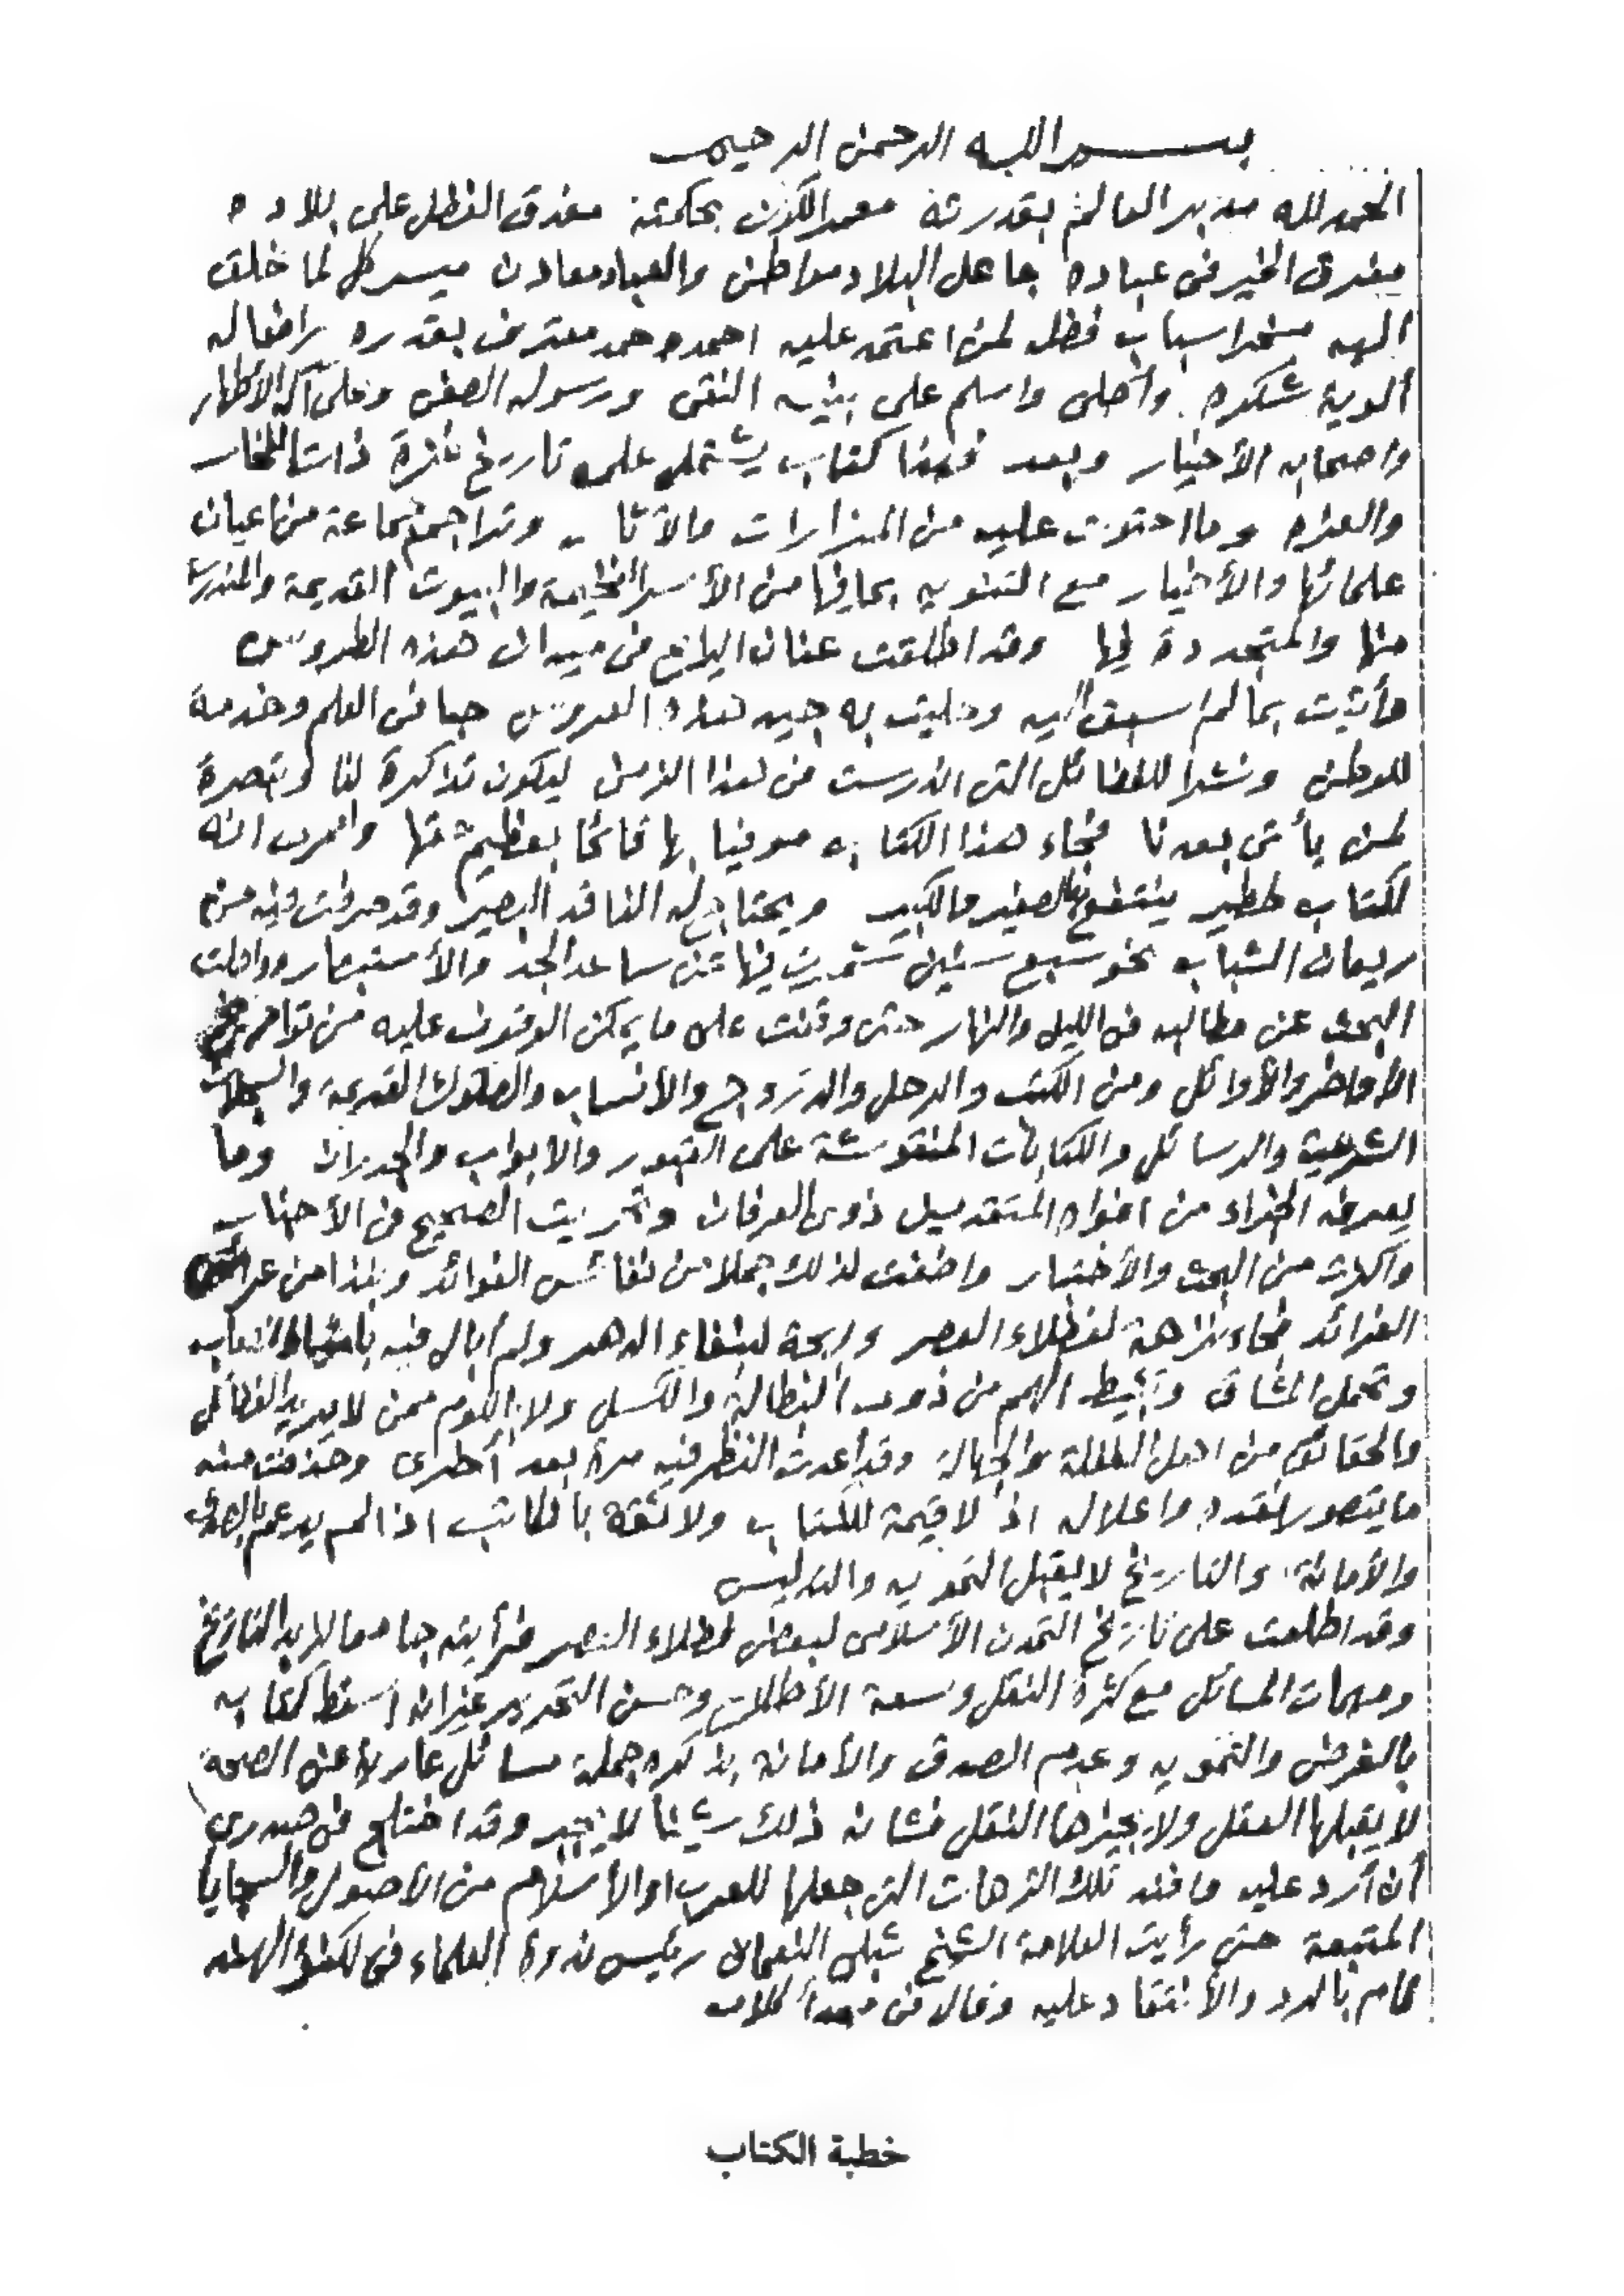 بسم الله الرحمن الرحيم
الحمد لله مدبر العالم بقدرته معمر الكون بحكمته مغدق الفضل على بلاده
مفرق الخير في عباده جاعل البلاد مواطن والعباد معادن ميسر كل لما خلق
اليه مسخر اسباب فضله لمن اعتمد عليه احمده حمد معترف بقدره وافعاله
شكره وأصلى واسلم على نبيه التقى ورسوله الصفى وعلى آله الأطهار
واصحابه الأخيار وبعد فهذا كتاب يشتمل على تاريخ غزة ذات الفخار
والعزه وما احتوت عليه من المزارات والآثار وتراجم جماعة من اعيان
علمائها والأخيار مع التنويه بما فيها من الأسر العظيمة والبيوت القديمة والمندرسة
منها والمتجددة فيها وقد اطلقت عنان اليراع في ميدان هذه الطروس
وأتيت بما لم اسبق اليه وحليت به جيد هذه العروس حبا في العلم وخدمة
للوطن ونشرا للفضائل التى اندرست في هذا الزمن ليكون تذكرة لنا وتبصرة
لمن يأتى بعدنا فجاء هذا الكتاب موفيا بها قائما بعظيم حقها والحمد لله انه
لكتاب خطير ينتفع به الصغير والكبير ويحتاج له الناقد البصير وقد صرفت فيه من
ريعان الشباب نحو سبع سنين شمرت فيها عن ساعد الجد والأستبصار وواصلت
البحث عن مطالبه في الليل والنهار حتى وقفت على ما يمكن الوقوف عليه من تواريخ
الأواخر والأوائل ومن الكتب والرحل والدروج والأنساب والصكوك القديمة والسجلات
الشرعية والرسائل والكتابات المنقوشة على القبور والابواب والجدران وما
يعرفه الخبراء من افواه المتقدمين ذوى العرفان وتحريت الصحيح من الأخبار
واكثرت من البحث والأختبار واضفت لذلك جملا من نفائس الفوائد ونبذا من عرائس
الفرائد فجاء نزهة لفضلاء العصر وبهجة لنبغاء الدهر ولم أبال فيه باقتحام الصعاب
وتحمل المشاق وتثبيط الهمم من ذوى البطالة والكسل ولا باللوم ممن لا يريد الفضائل
والحقائق من اهل الضلالة والجهالة وقد أعدت النظر فيه مرة بعد أخرى وحذفت منه
ما يتصور نقده واعلاله اذ لا قيمة للكتاب ولا ثقة بالكاتب اذا لم يدعم بالصدق
والأمانة والتاريخ لا يقبل التمويه والتدليس
وقد اطلعت على تاريخ التمدن الأسلامى لبعض فضلاء العصر فرأيته جامعا لفرائد التاريخ
ومهمات المسائل مع كثرة النقل وسعة الأطلاع وحسن التحرير غير انه أسقط كتابه
بالغرض والتمويه وعدم الصدق والأمانة بذكره جملة مسائل عارية عن الصحة
لا يقبلها العقل ولا يجيزها النقل فشانه ذلك شيئا لا يجبر وقد اختلج في صدرى
أن أرد عليه وافند تلك الترهات التى جعلها للعرب او الأسلام من الأصول والسجايا
المتبعة حتى رأيت العلامة الشيخ شبلى النعمانى رئيس ندوة العلماء في لكنؤ الهند
قام بالرد والأنتقاد عليه وقال في مبدأ كلامه
خطبة الكتاب